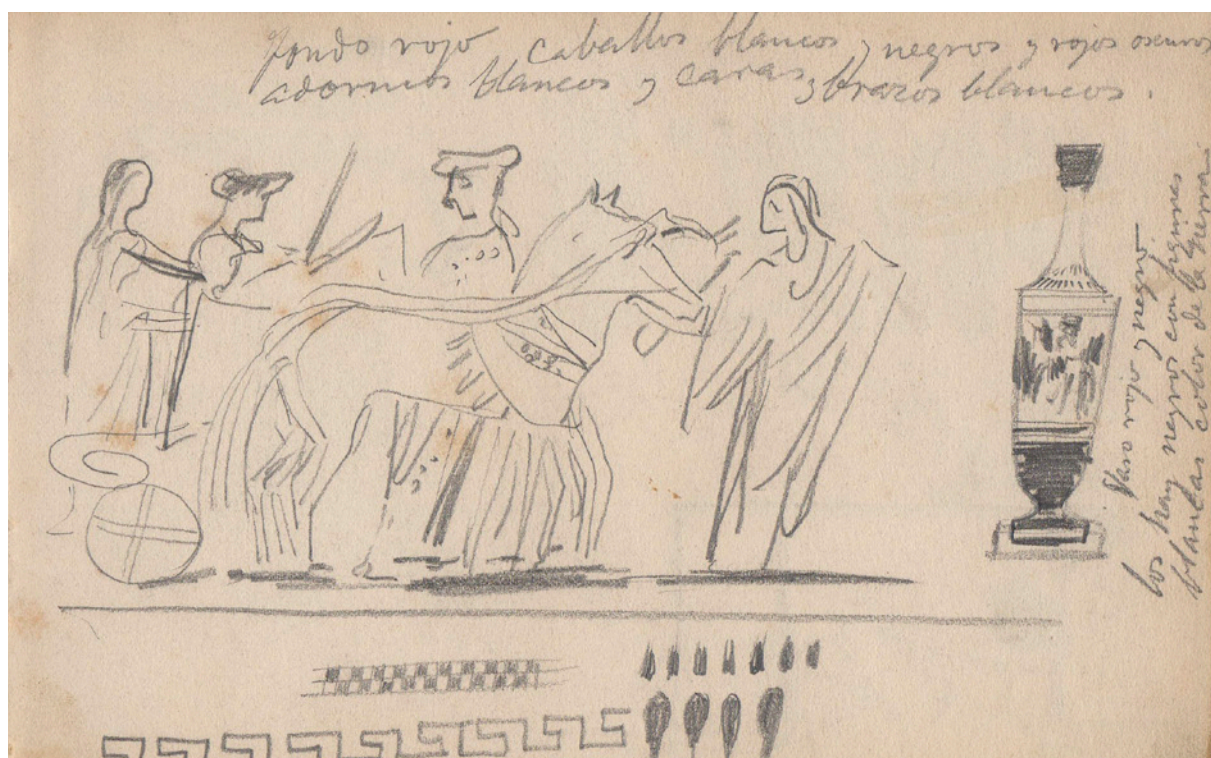 fondo rojo caballos blancos y negros y rojos oscuros
adornos blancos y caras y brazos blancos.
Vaso rojo y negro
los hay negros con figuras
blancas color de la tierra.